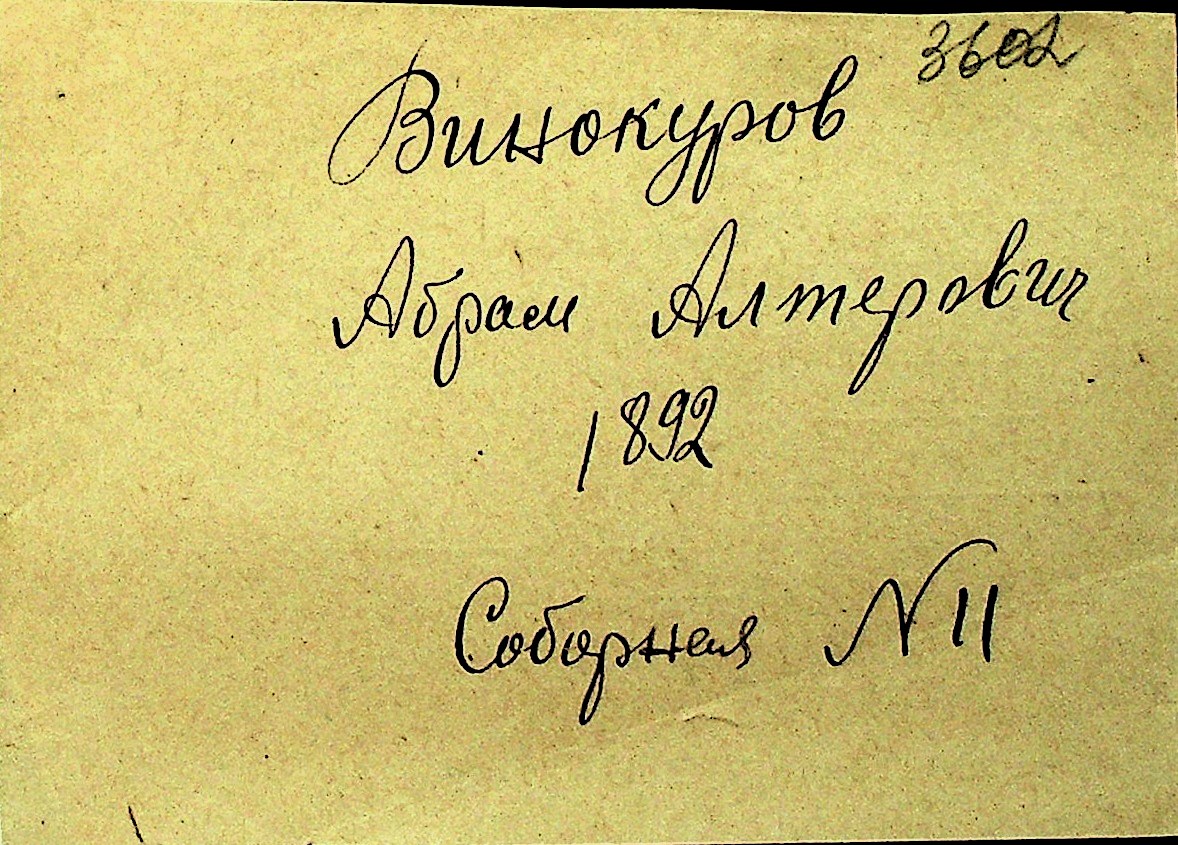 3602
Винокуров
Абрам Алтерович
1892
Соборная N 11